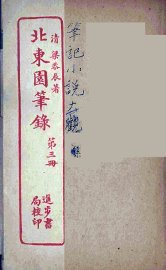 筆記小說大觀
清 梁恭辰著
北東園筆錄
第三冊
進步書
局校印